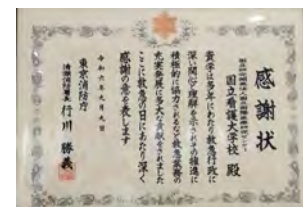 感謝状
国立看護大学校 殿
貴学は多年にわたり救急行政に
深い関心と理解を示されその推進に
積極的に協力されるなど救急業務の
充実発展に多大な貢献をされました
ここに救急の日にあたり深く
感謝の意を表します
令和六年九月九日
東京消防庁
清瀬消防署長 行川 勝義